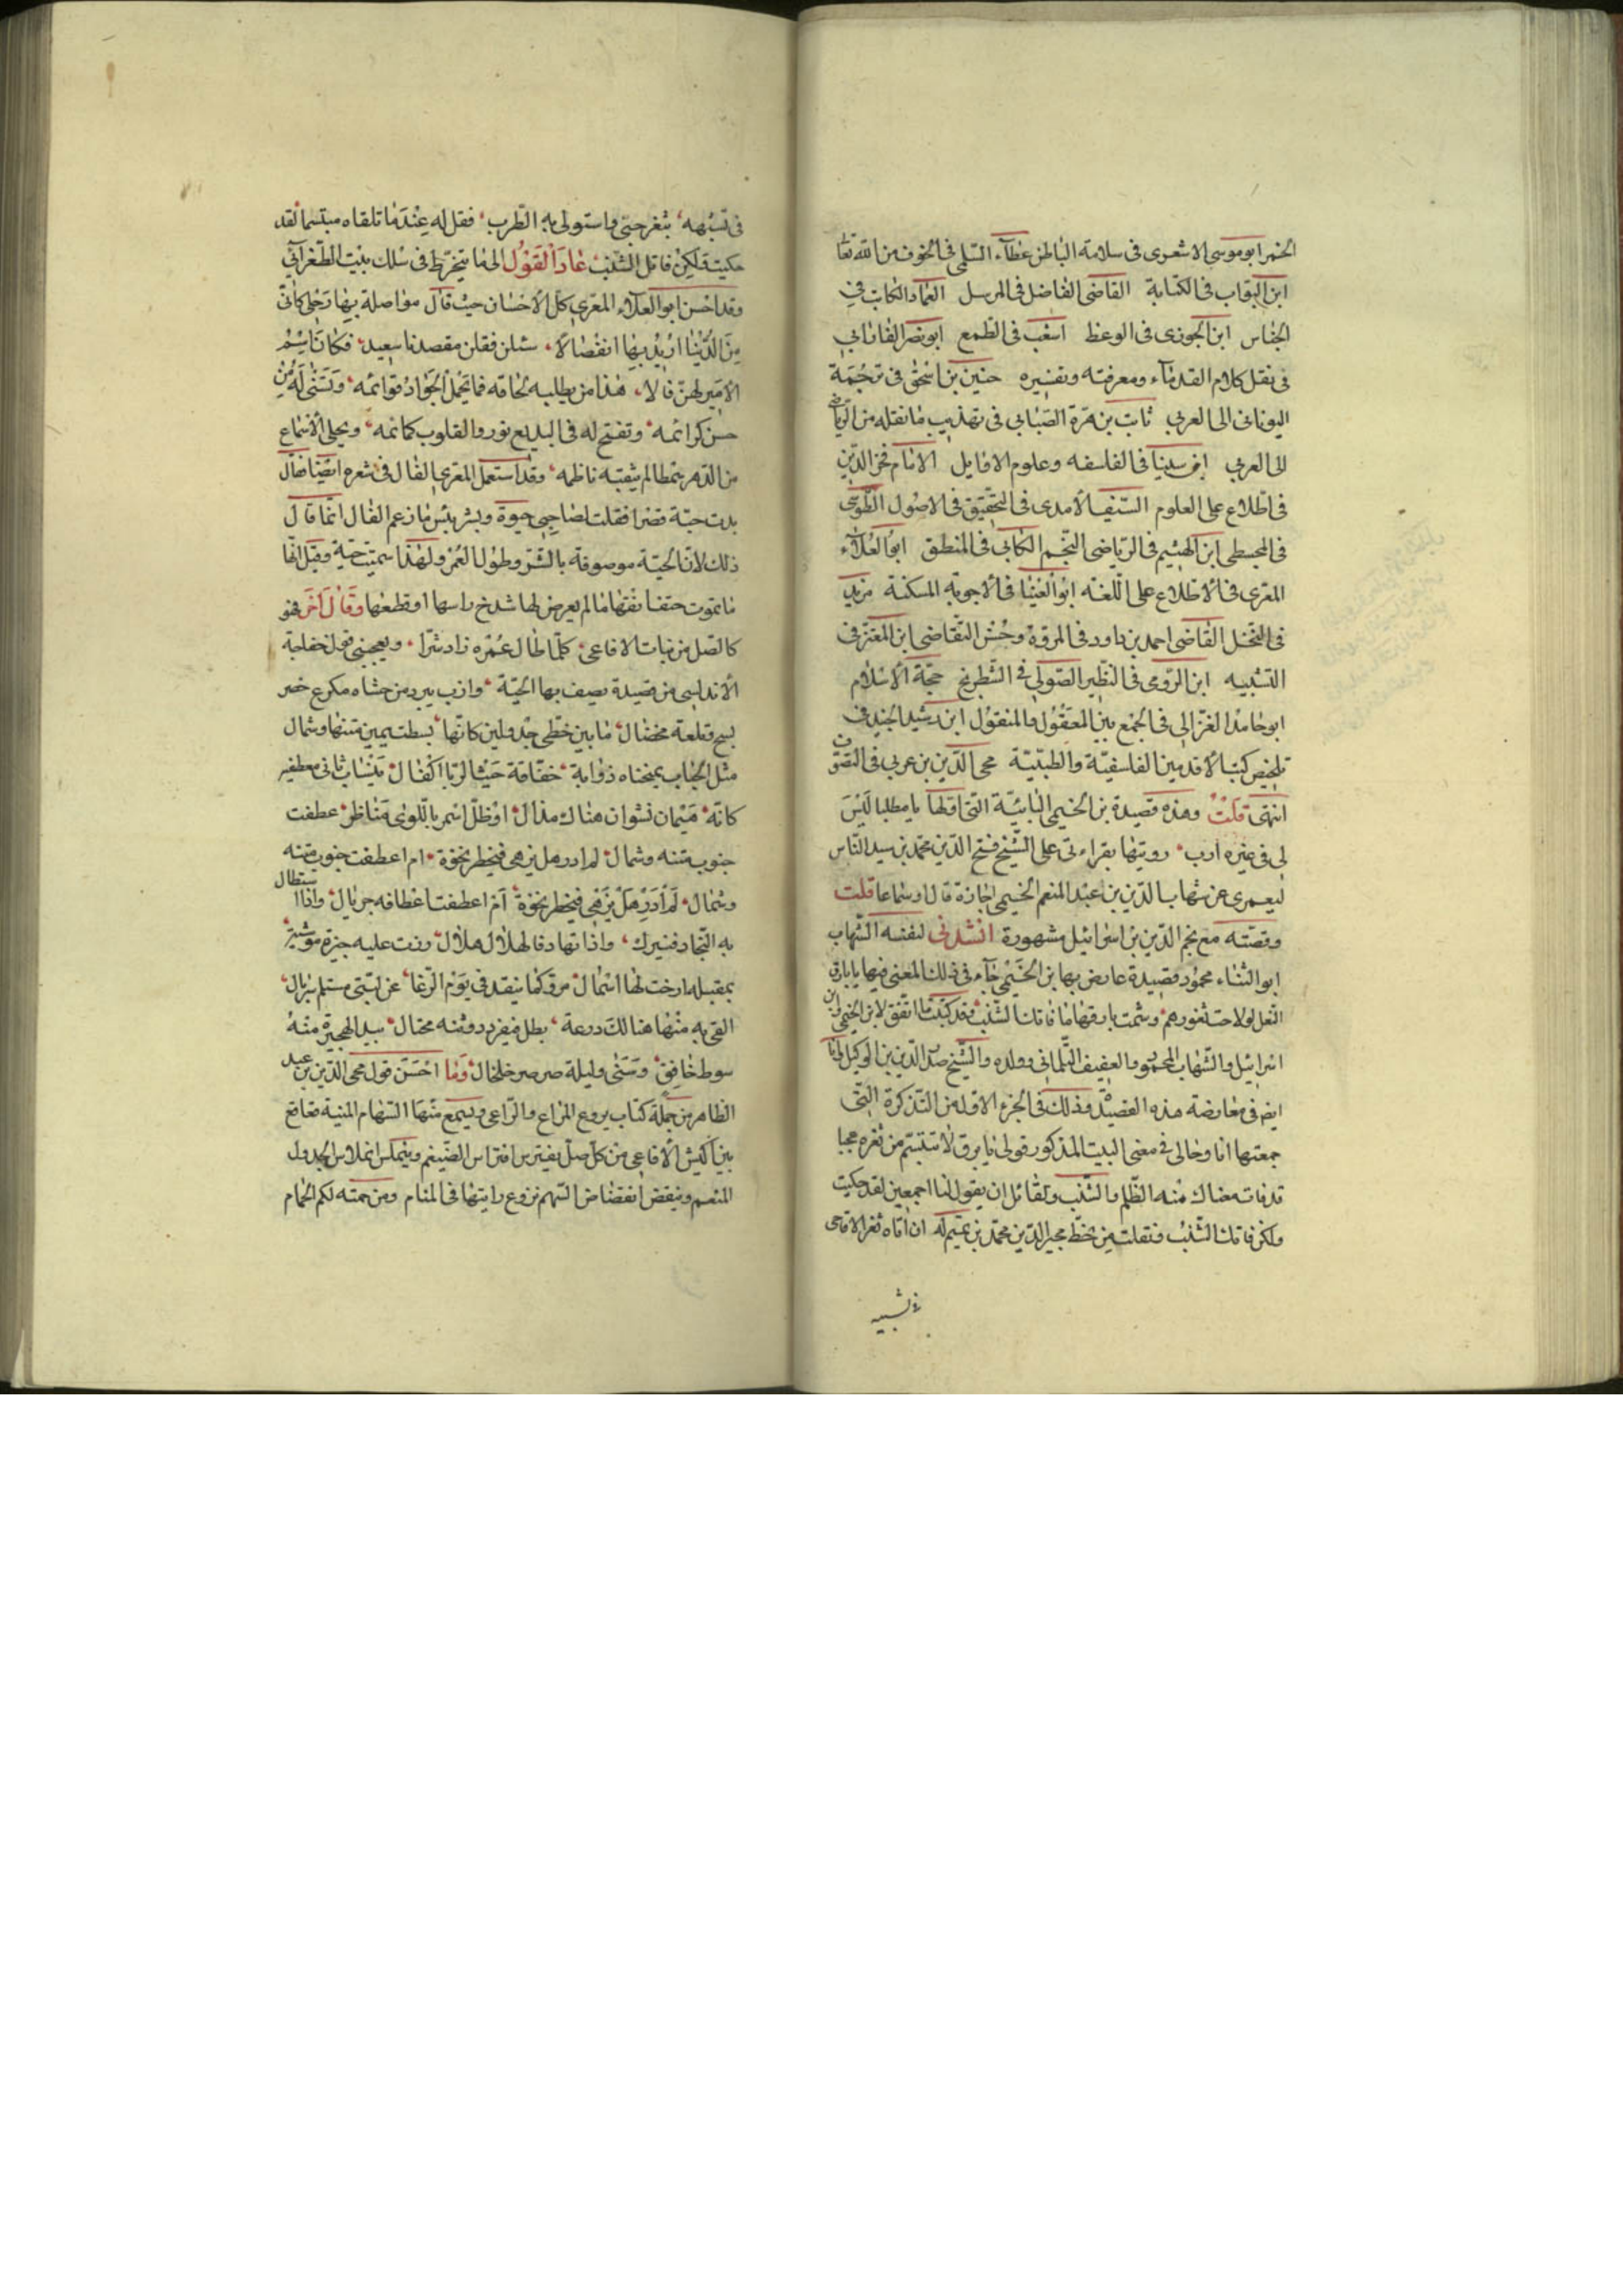 الخمر ابو موسى الاشعرى فى سلامة الباطن عطآء السّلمى فى الخوف من الله تعا
ابن البوّاب فى الكتابة القاضى الفاضل فى المرسل العماد الكاتب فى
الجناس ابن الجوزى فى الوعظ اشعب فى الطمع ابو نصر الفارابى
فى نقل كلام القدمآء ومعرفته وتفسيره حنين بن اسحٰق فى ترجمة
اليونانى الى العربى ثابت بن قرة الصّابى فى تهذيب ما نقله من الرياضى
الى العربى ابن سينا فى الفلسفه وعلوم الاوايل الامام فخر الدّين
فى اطّلاع على العلوم السّيف الآمدى فى التحقيق فى الاصول الطّوسى
فى المجسطى ابن الهيثم فى الرياضى النّجم الكاتبى فى المنطق ابو العلآء
المعرى فى الاطلاع على اللّغة ابو العينا فى الاجوبة المسكتة مزيد
فى البخل القاضى احمد بن داود فى المروّة وحُسن التّقاضى ابن المعتز فى
التشبيه ابن الرّومى فى النظير الصّولى فى الشّطرنج حجّة الاسلام
ابو حامد الغزّالى فى الجمع بين المعقول والمنقول ابن رشيد الحفيد فى
تلخيص كتب الاقدمين الفلسفيّة والطبّيّة محى الدّين بن عربى فى التصوّف
انتهى قلت وهذه قصيدة بن الخيمى البائيّة التى اوّلها يا مطلبا لَيْسَ
لى فى غيره ارب رويتها بقراءتى على الشّيخ فتح الدّين محمّد بن سيد النّاس
ليعمرى عن شهاب الدّين بن عبد المنعم الخيمى اجازة قال او سماعا قلت
وقصّته مع نجم الدّين بن اسرائيل مشهورة انشدنى لنفسه الشّهاب
ابو الثناء محمود قصيدة عارض بها بن الخيمى جآء فى ذلك المعنى فيها يا بارق
الثغر لولا حت ثغورهم وشمت بارقها ما فاتك الشّنب وقد كتبت ما اتّفق لابن الخيمى وابن
اسرائيل والشّهاب محمود والعفيف التّلمسانى وولده والشّيخ صدر الدّين بن الوكيل ولى انا
ايضا فى معارضة هذه القصيدة وذلك فى الجزء الاوّل من التّذكرة التى
جمعتها انا وخالى فى معنى البيت المذكور قولى يا برق لا تتبسّم من ثغره عجبا
قد فات معناك منه الظّلم والشّنب ولقائل ان يقول لنا اجمعين لقد حكيت
ولكن فاتك الشّنب ونقلت من خطّ مجير الدّين محمّد بن تميم له ان تاه ثغر الاقاحى
فى تشبيه
فى تشبهه بثغر حبّى واستولى به الطّرب فقل له عندما تلقاه مبتسما لقد
حكيت ولكن فاتك الشّنب عَادَ القَول الى ما ينخرط فى سلك بيت الطّغرآئى
وقد احسن ابو العلآء المعرى كلّ الاحسان حيث قال مواصلة بها رحلى كانّى
من الدّنيا اريد بها انفصالا سئلن فقلن مقصدنا سعيد فكان اسم
الامير لهنّ فالا هذا من يطلبه لحاقه فما يحمل الجواد قوائمه وتسنّى له من
حسن كرائمه وتفتح له فى البديع نور والقلوب كمائمه ويحلى الاسماع
من الدّهر بنمط لم يثقبه ناظمه وقد استعمل المعرى الفال فى شعره ايضا فقال
بدت حيّة قصرا فقلت لصاحبى حيوة وبشر بئس ما زعم الفال انّما قال
ذلك لانّ الحيّة موصوفة بالشّرّ وطول العمر ولهذا سميت حيّة وقيل انّها
ما تموت حتف انفها ما لم يعرض لها شدخ راسها او قطعها وقال آخر فهو
كالصّل من نبات الافاعى كلّما طال عُمْره زاد شرّا ويعجبنى قول خفاجة
الاندلسى من قصيدة يصف بها الحيّة
ما بين خطّى جدولين كانّها بسطت يمين متنها وشمال
مثل الحباب بمنحناه ذؤابة خفّاقة حيث الربا اكفال
كانّه هيمان نشوان هناك مذال او ظلّ اسمر باللّوى متناظر عطفت
جنوب متنه وشمال لم ادر هل يزهى فيخطر نخوة ام اعطفت جنوب متنه
وشمال لم ادر هل يزهى فيخطر نخوة ام اعطفت اعطافه جريال واذا استطال
به النّجاد فنيرك واذا تهادى فالهلال هلال
القى به منها هنالك درعة بطل
سوط خافق وسنى وليلة صرصر خلخال وما احسن قول محى الدّين بن عبد
الظاهر من جملة كتاب يروع المزاع والرّاعى ويسمع منها السّهام المنية قعاقع
بين كشيش الافاعى من كلّ صلّ يفترس افتراس الضّيغم وينملس انملاس الجدول
المنعم وينقض انقضاض السّهم تروع رايتها فى المنام ومن حمته لكم الحمام